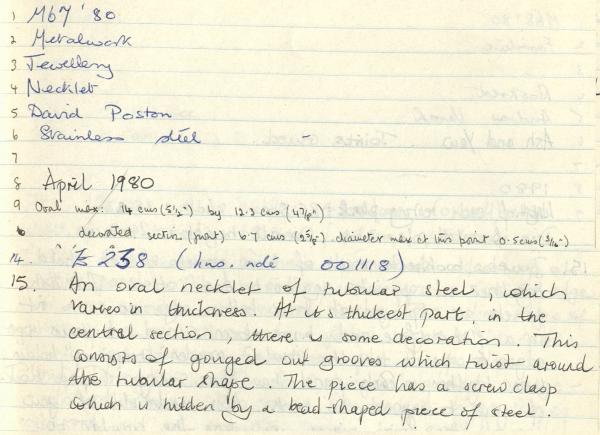 1 M67 '80
2 Metalwork
3 Jewellery
4 Necklet
5 David Poston
6 Stainless steel
7
8 April 1980
9 Oval max: 14 cms (5½") by 12.2 cms (4⅞")
decorated section (part) 6.7 cms (2⅝") diameter max at this point 0.5cms (3/16")
14. £ 238 (Inv. no 001118)
15. An oral necklet of tubular steel, which
varies in thickness. At it's thickest part, in the
central section, there is some decoration. This
consists of gouged out grooves which twist around
the tubular shape. The piece has a screw clasp
which is hidden by a bead-shaped piece of steel.